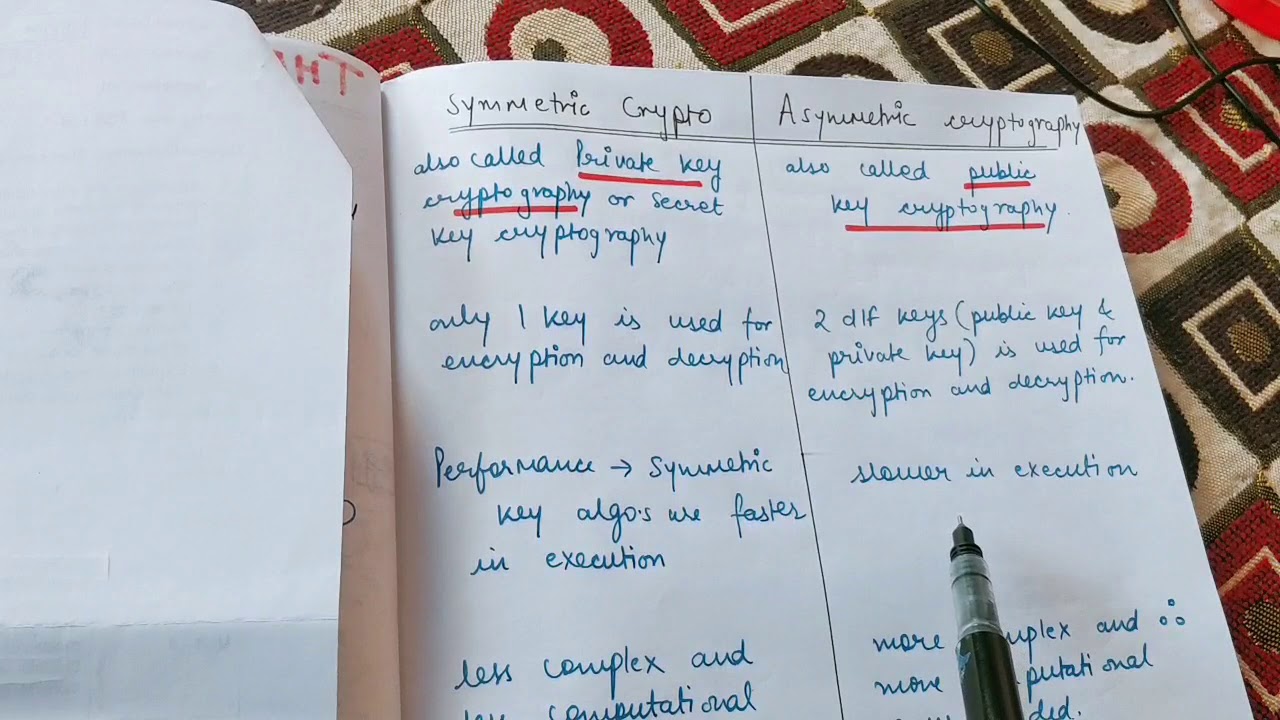 Symmetric Crypto
also called Private key
cryptography or secret
key cryptography
only 1 key is used for
encryption and decryption
Performance → symmetric
key algo's are faster
in execution
less complex and
computational
Asymmetric cryptography
also called public
key cryptography.
2 dif keys (public key &
private key) is used for
encryption and decryption.
slower in execution
more and ∴
more